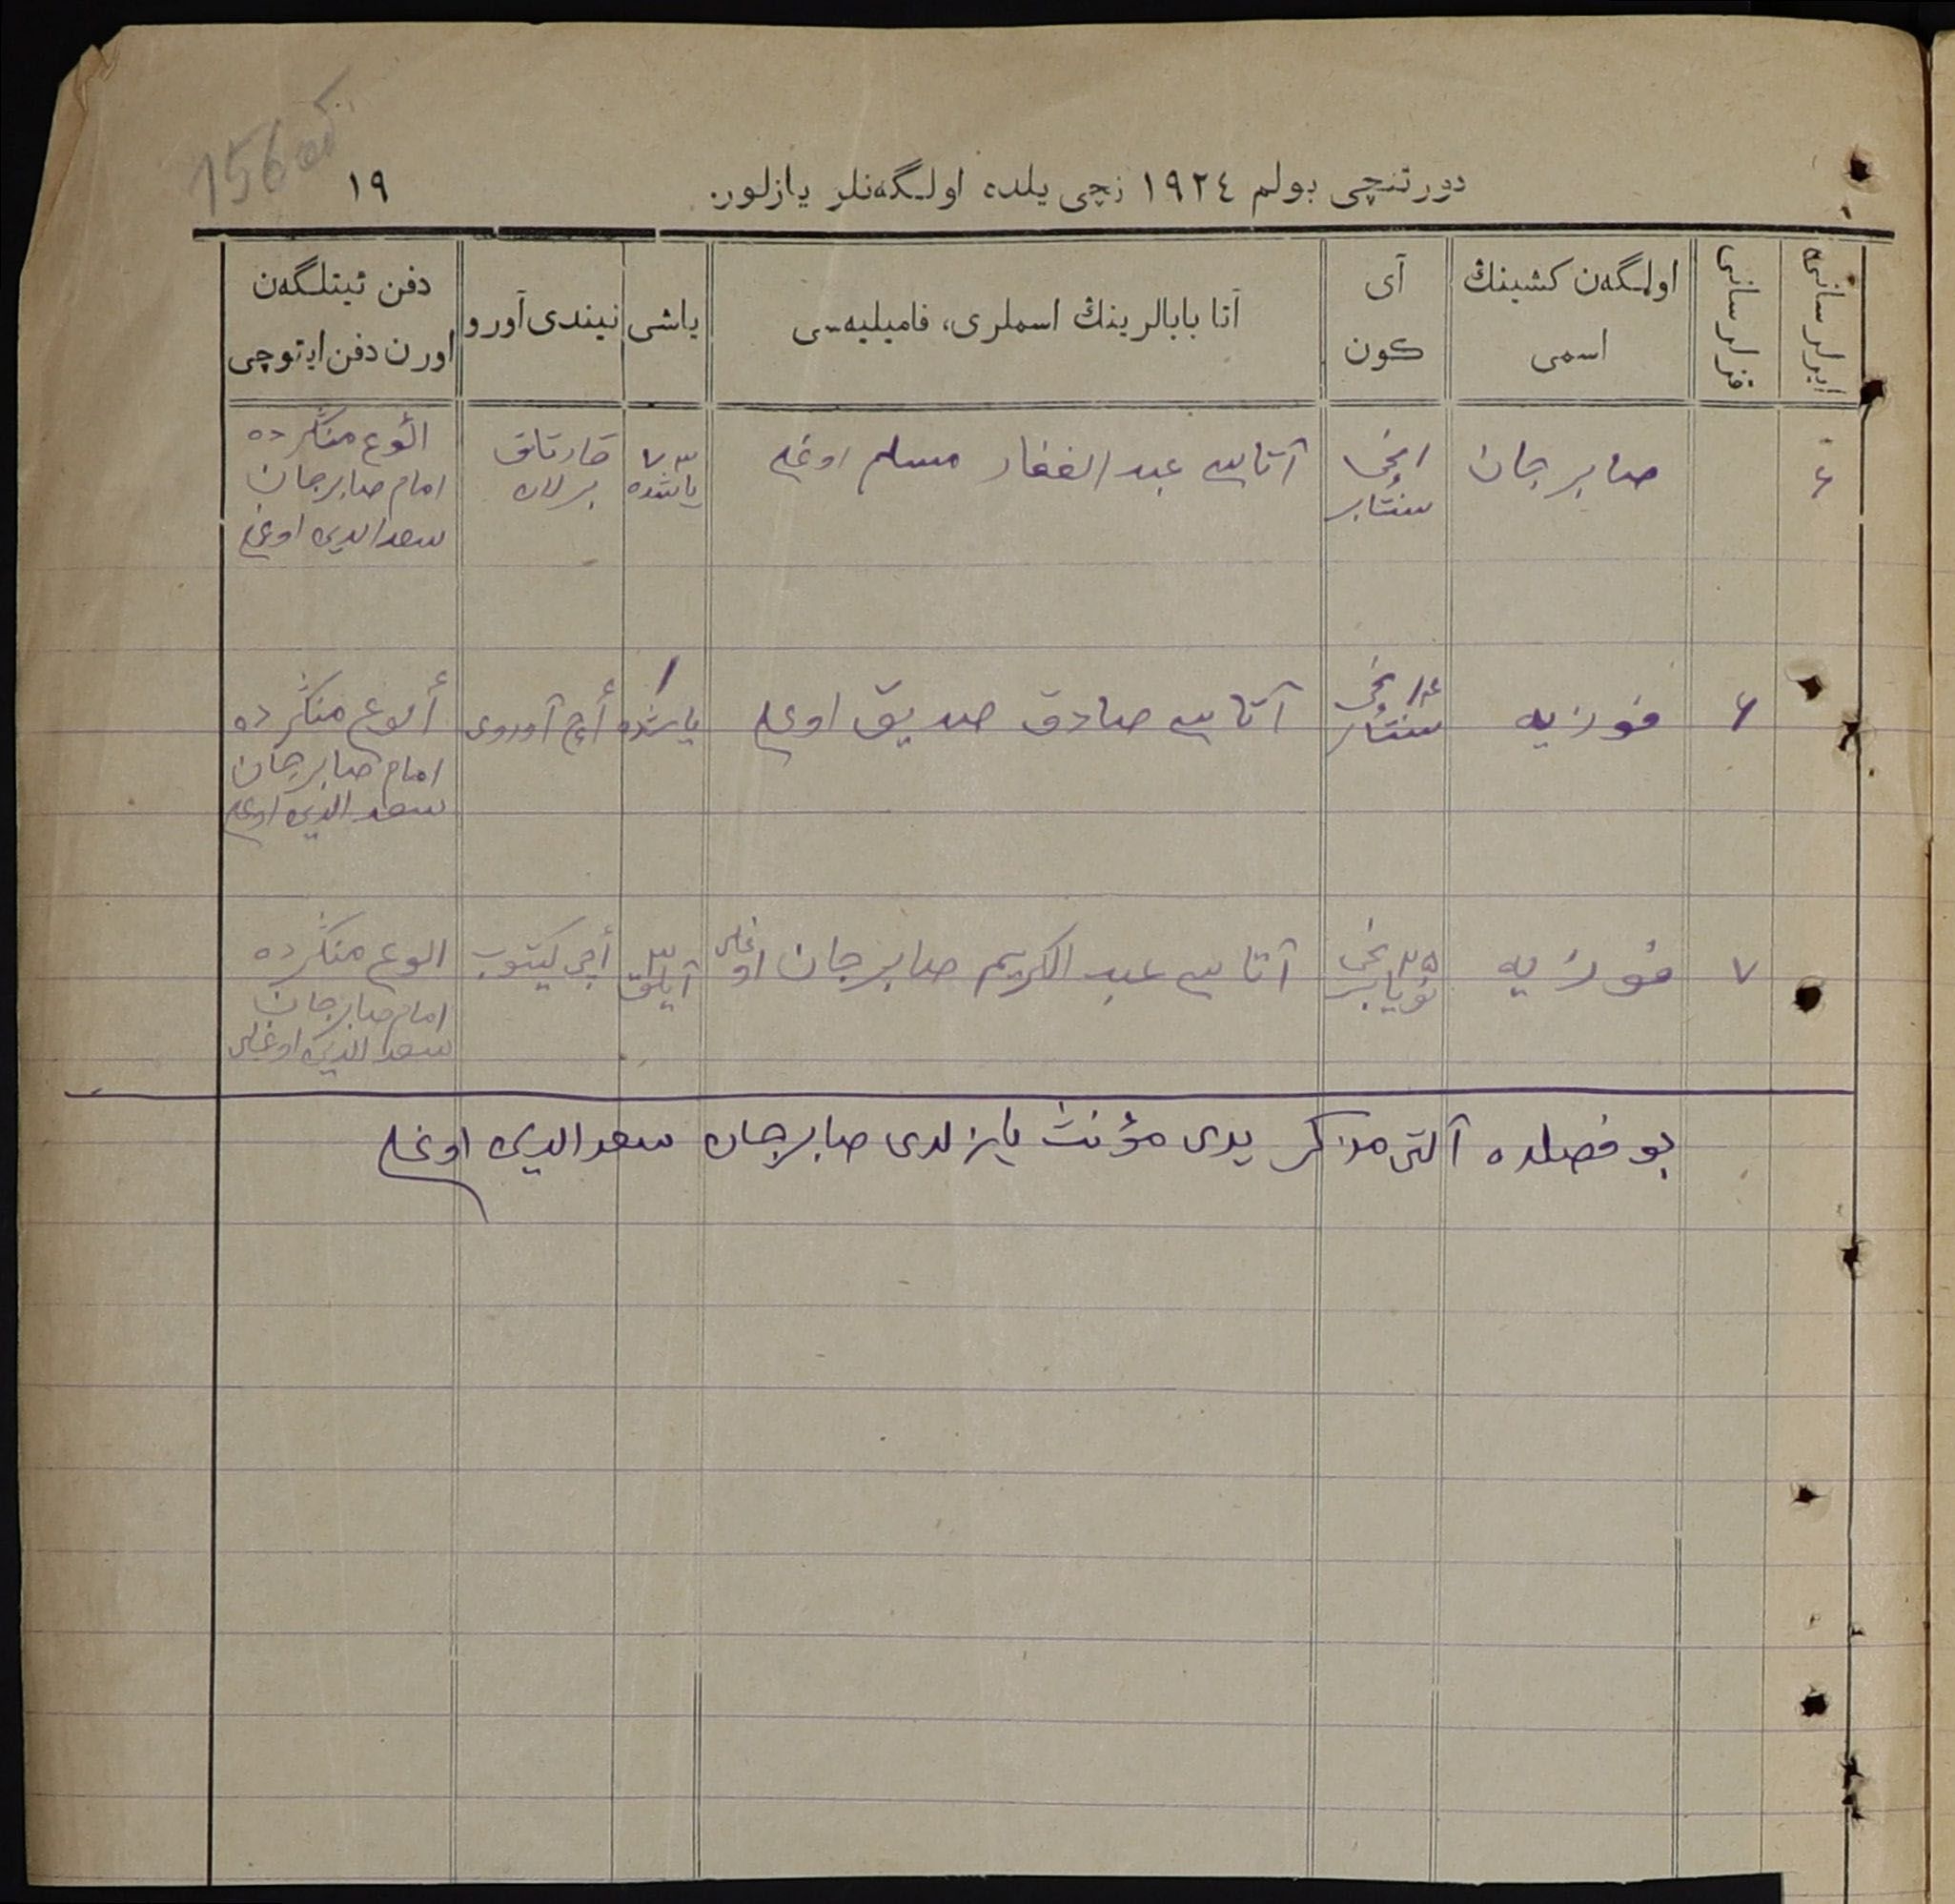 156 об
دورتنچی بولم ١٩٢٤ نچی یلده اولـگه‌نلر یازلور.
١٩
ایرلر سانی
قزلر سانی
اولـگه‌ن کشینڭ
اسمی
آی
کون
آتا بابالرینڭ اسملری، فامیلیه‌سی
یاشی
نیندی آورو
دفن ئیتلـگه‌ن
اورن دفن ایتوچی
۶
صابرجان
١نچی
سنتابر
آتاسی عبد الغفار مسلم اوغلی
٧٣
یاشده
قارتلق
برلان
الوغ منگرده
امام صابرجان
سعد الدین اوغلی
۶
فوزیه
نچی
سنتابر
آتاسی صادق صدیق اوغلی
١
یاشده
أچ آوروی
ألوغ منگرده
امام صابرجان
سعد الدین اوغلی
٧
فوزیه
٢۵ نچی
نویابر
آتاسی عبد الکریم صابرجان اوغلی
٣
آیلق
أچی کیتوب
الوغ منگرده
امام صابرجان
سعد الدین اوغلی
بو فصلده آلتی مذکر یدی مؤنث یازلدی صابرجان سعد الدین اوغلی